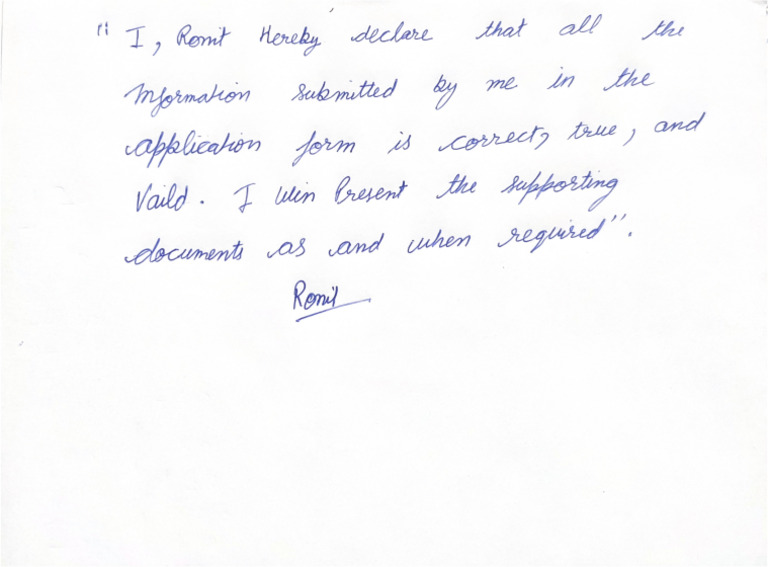 "I, Romit Hereby declare that all the
Information submitted by me in the
application form is correct, true, and
Vaild. I Win Present the supporting
documents as and when required".
Romit